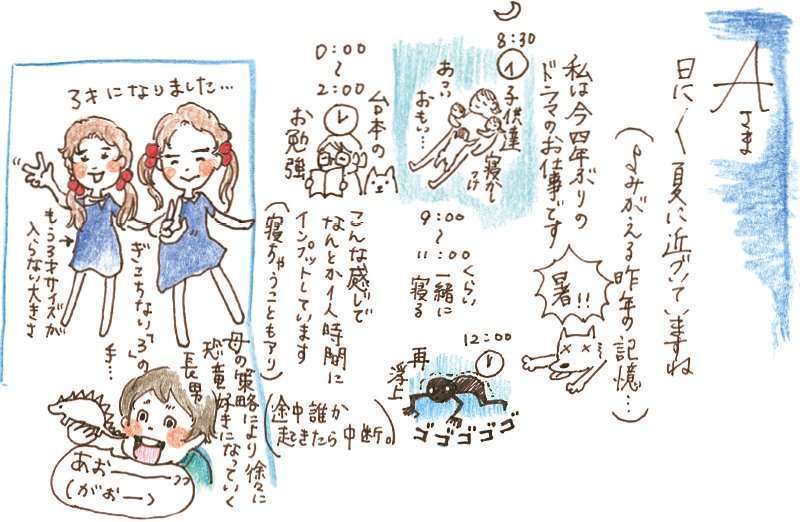 Aさま
日に日に夏に近づいていますね
(よみがえる昨年の記憶…)
暑!!
私は今四年ぶりの
ドラマのお仕事です
8:30
子供達
寝かしつけ
あつい
おもい…
9:00
〜
11:00くらい
一緒に
寝る
12:00
再
浮上
ゴゴゴゴゴ
0:00
〜
2:00
台本の
お勉強
こんな感じで
なんとか1人時間に
インプットしています
(寝ちゃうこともアリ)
(途中誰か
起きたら中断。)
3才になりました…
もう3才サイズが
入らない大きさ
ぎこちない「3」の
手…
母の策略により徐々に
恐竜好きになっていく
長男
あおーーー
(がおー)